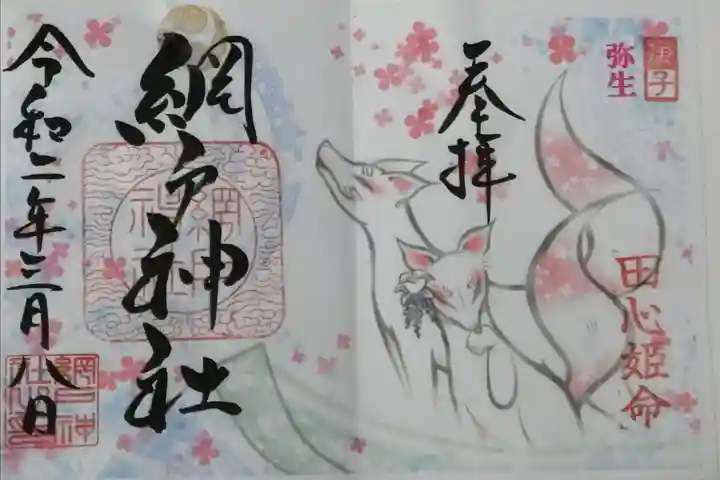 弥生
庚子
奉拝
田心姫命
網戸神社
令和二年三月八日